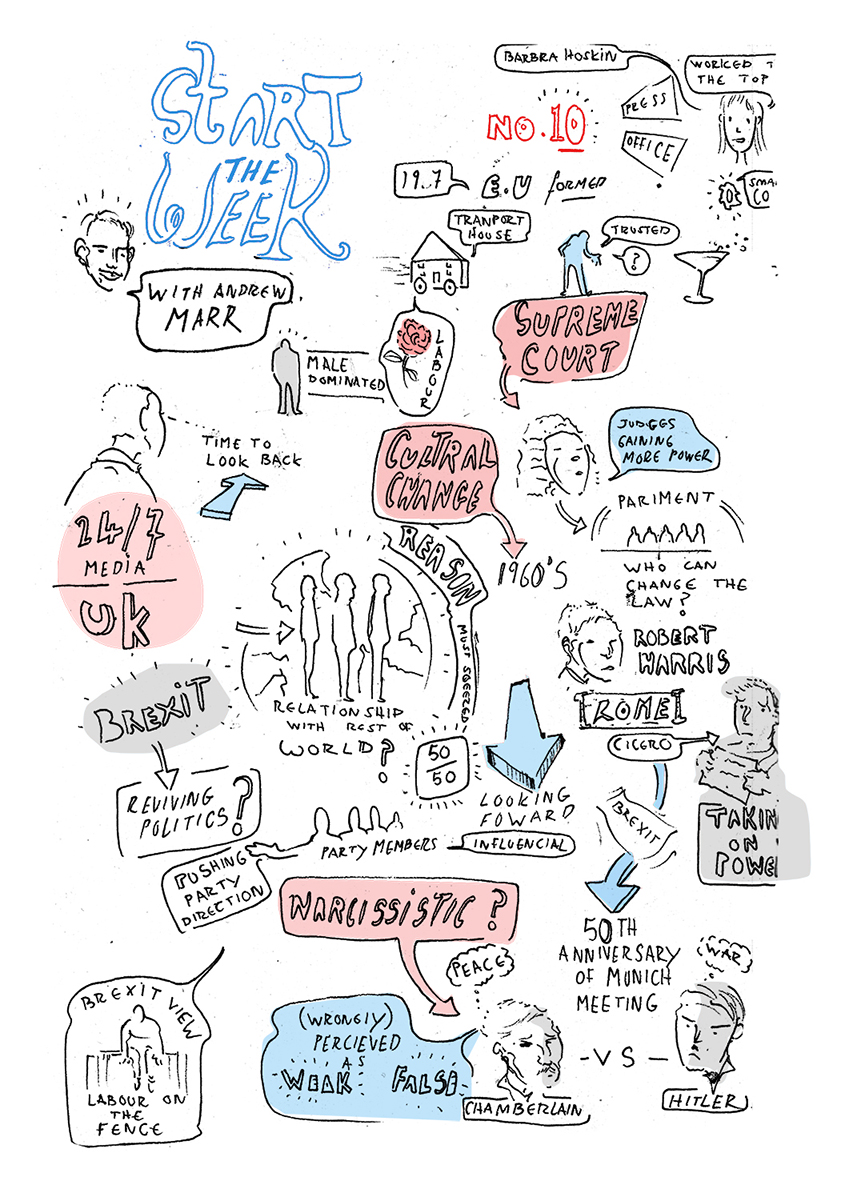 START
THE
WEEK
WITH ANDREW
MARR
BARBRA HOSKIN
WORKED T
THE TOP
PRESS
OFFICE
NO.10
E.U FORMED
SMA
CO
TRANPORT
HOUSE
TRUSTED
?
SUPREME
COURT
MALE
DOMINATED
LABOUR
TIME TO
LOOK BACK
CULTRAL
CHANGE
JUDGES
GAINING
MORE POWER
PARIMENT
WHO CAN
CHANGE THE
LAW?
24/7
MEDIA
UK
REASON
1960'S
RELATIONSHIP
WITH REST OF
WORLD?
50
50
ROBERT
HARRIS
ROME
CICERO
TAKIN
ON
POWE
BREXIT
REVIVING
POLITICS?
LOOKING
FOWARD
BREXIT
PARTY MEMBERS
INFLUENCIAL
PUSHING
PARTY
DIRECTION
NARCISSISTIC?
50TH
ANNIVERSARY
OF MUNICH
MEETING
PEACE
WAR
BREXIT VIEW
LABOUR ON
THE
FENCE
(WRONGLY)
PERCIEVED
AS
WEAK FALSE
CHAMBERLAIN
-VS-
HITLER